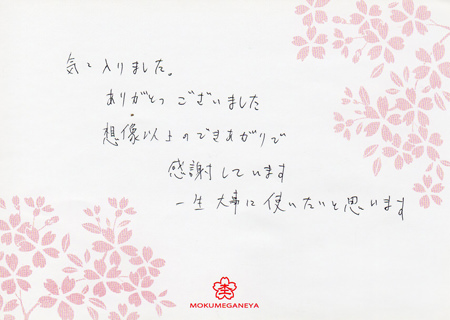 気に入りました。
ありがとうございました
想像以上のできあがりで
感謝しています
一生大事に使いたいと思います
杢
MOKUMEGANEYA